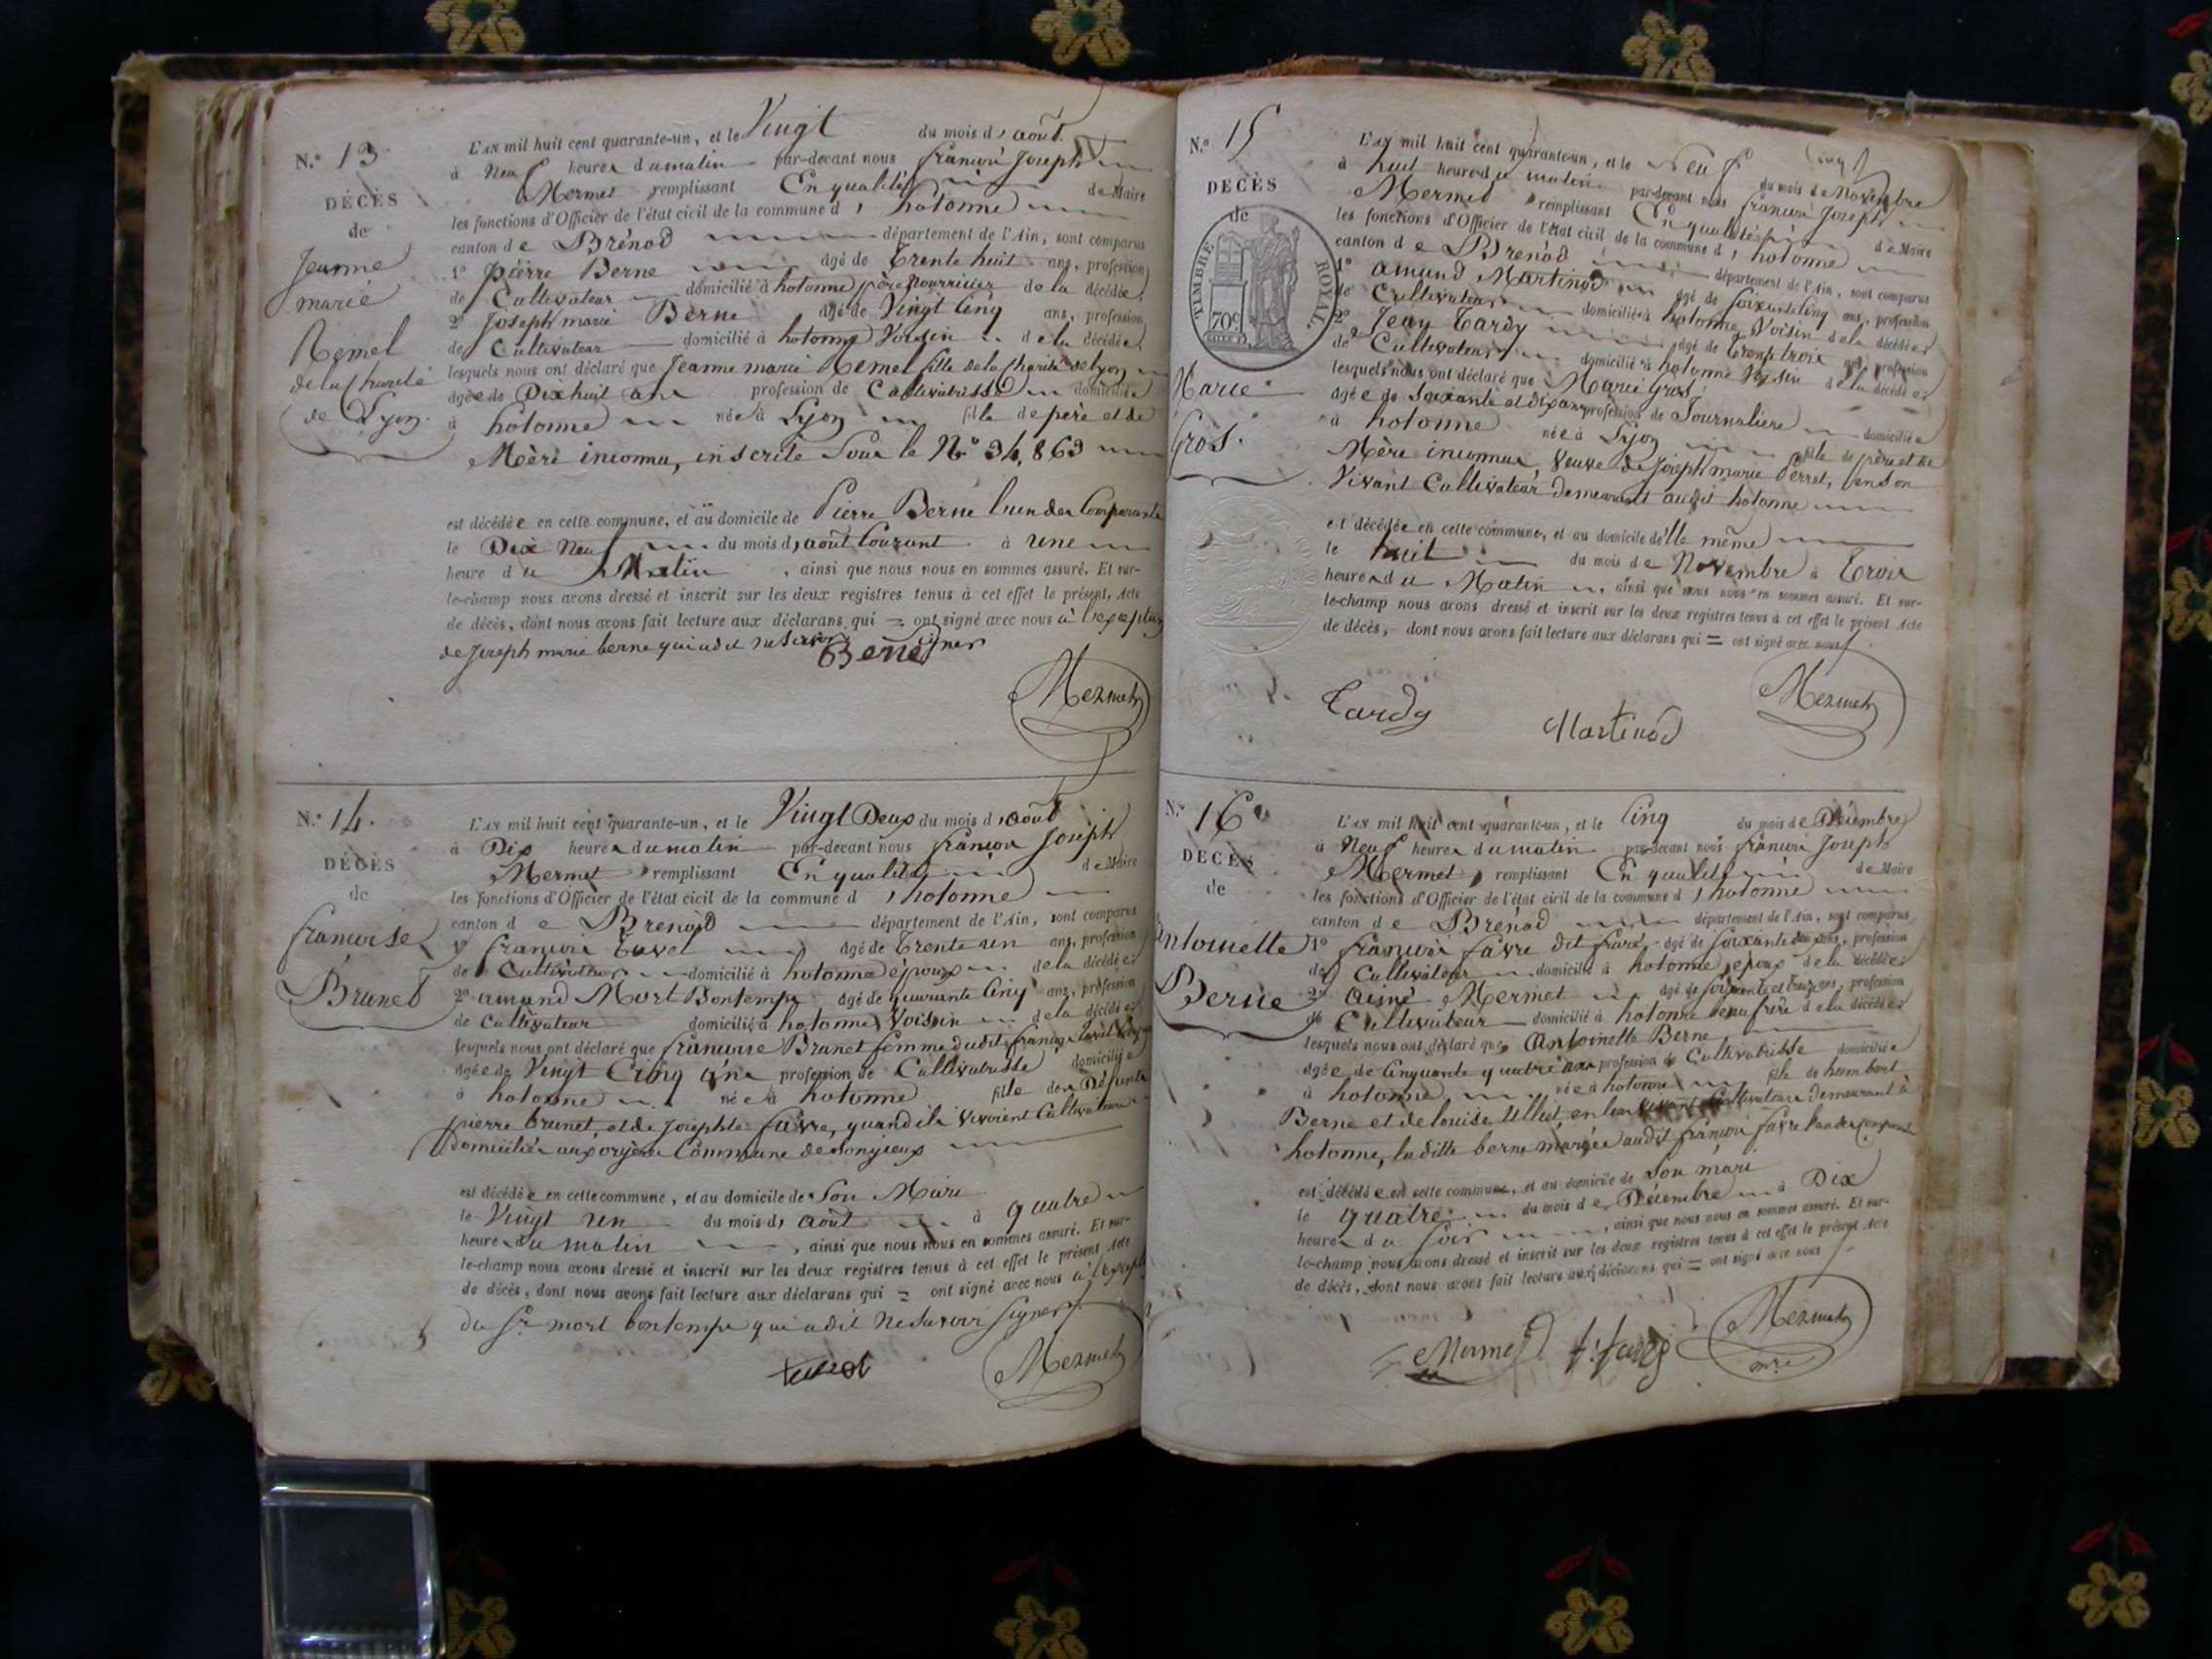 N.° 13
DÉCÈS
de
Jeanne
marie
Remel
de la Charité
de Lyon.
L'AN mil huit cent quarante-un, et le Vingt du mois d'août
à Neuf heures du matin par-devant nous françois Joseph
Mermet remplissant En qualité de Maire
les fonctions d'Officier de l'état civil de la commune d'hotonne
canton de Brénod département de l'Ain, sont comparus
1° pierre Berne âgé de Trente huit ans, profession
de Cultivateur domicilié à hotonne père Nourricier de la décédée,
2° Joseph marie Berne âgé de Vingt Cinq ans, profession
de Cultivateur domicilié à hotonne Voisin de la décédée,
lesquels nous ont déclaré que Jeanne marie Remel fille de la Charité de Lyon
âgée de Dix huit ans profession de Cultivatrisse domiciliée
à hotonne née à Lyon fille de père et de
Mère inconnu, inscrite Sous le N° 34,863
est décédée en cette commune, et au domicile de Pierre Berne l'un des Comparants
le Dix Neuf du mois d'août Courant à une
heure du Matin, ainsi que nous nous en sommes assuré. Et sur-
le-champ nous avons dressé et inscrit sur les deux registres tenus à cet effet le présent, Acte
de décès, dont nous avons fait lecture aux déclarans qui = ont signé avec nous à
de Joseph marie berne qui a dit ne Savoir signer
Berne
Mermet
N.° 14.
DÉCÈS
de
francoise
Brunet
L'AN mil huit cent quarante-un, et le Vingt Deux du mois d'août
à Dix heures du matin par-devant nous francois Joseph
Mermet remplissant En qualité de Maire
les fonctions d'Officier de l'état civil de la commune d'hotonne
canton de Brenod département de l'Ain, sont comparus
1° françois Tavel âgé de Trente un ans, profession
de Cultivateur domicilié à hotonne époux de la décédée
2° amand Mort Bontemps âgé de quarante Cinq ans, profession
de Cultivateur domicilié à hotonne Voisin de la décédée
lesquels nous ont déclaré que francoise Brunet femme dudit françois
âgée de Vingt Cinq ans profession de Cultivatrisse domiciliée
à hotonne née à hotonne fille des Défunts
pierre brunet, et de Josephte favre, quand ils Vivoient Cultivateurs
Domiciliés Commune de Songieux
est décédée en cette commune, et au domicile de Son Mari
le Vingt un du mois d'août à quatre
heures du matin, ainsi que nous nous en sommes assuré. Et sur-
le-champ nous avons dressé et inscrit sur les deux registres tenus à cet effet le présent Acte
de décès, dont nous avons fait lecture aux déclarans qui = ont signé avec nous à
du Sr mort bontemps qui a dit Ne Savoir Signer
Mermet
N.° 15
DÉCÈS
de
TIMBRE ROYAL.
70c
Marie
Gros.
L'AN mil huit cent quarante-un, et le Neuf du mois de Novembre
à huit heures du matin par-devant nous francois Joseph
Mermet remplissant En qualité de Maire
les fonctions d'Officier de l'état civil de la commune d'hotonne
canton de Brenod département de l'Ain, sont comparus
1° amand Martinod âgé de Soixante Cinq ans, profession
de Cultivateur domicilié à hotonne Voisin de la décédée
2° Jean Tardy âgé de Trente trois ans, profession
de Cultivateur domicilié à hotonne Voisin de la décédée
lesquels nous ont déclaré que Marie Gros
âgée de Soixante et dix ans profession de Journaliere domiciliée
à hotonne née à Lyon fille de père et de
Mère inconnus, Veuve de Joseph marie Perret, en Son
Vivant Cultivateur demeurant audit hotonne
est décédée en cette commune, et au domicile d'elle même
le huit du mois de Novembre à Trois
heures du Matin, ainsi que nous nous en sommes assuré. Et sur-
le-champ nous avons dressé et inscrit sur les deux registres tenus à cet effet le présent Acte
de décès, dont nous avons fait lecture aux déclarans qui = ont signé avec nous
Tardy
Martinod
Mermet
N.° 16
DÉCÈS
de
antoinette
Berne
L'AN mil huit cent quarante-un, et le Cinq du mois de Décembre
à Neuf heures du matin par-devant nous françois Joseph
Mermet, remplissant En qualité de Maire
les fonctions d'Officier de l'état civil de la commune d'hotonne
canton de Brenod département de l'Ain, sont comparus
1° francois favre dit âgé de Soixante ans, profession
de Cultivateur domicilié à hotonne, epoux de la décédée
2° aimé Mermet âgé de Soixante et treize ans, profession
de Cultivateur domicilié à hotonne beaufrère de la décédée
lesquels nous ont déclaré que antoinette Berne
âgée de Cinquante quatre ans profession de Cultivatrisse domiciliée
à hotonne née à hotonne fille de humbert
Berne et de louise en leur vivant Cultivateurs demeurant à
hotonne, la ditte berne mariée audit francois favre l'un des Comparants
est décédée en cette commune, et au domicile de Son mari
le quatre du mois de Décembre à Dix
heures du Soir, ainsi que nous nous en sommes assuré. Et sur-
le-champ nous avons dressé et inscrit sur les deux registres tenus à cet effet le présent Acte
de décès, dont nous avons fait lecture aux déclarans qui = ont signé avec nous
Mermet
Mermet